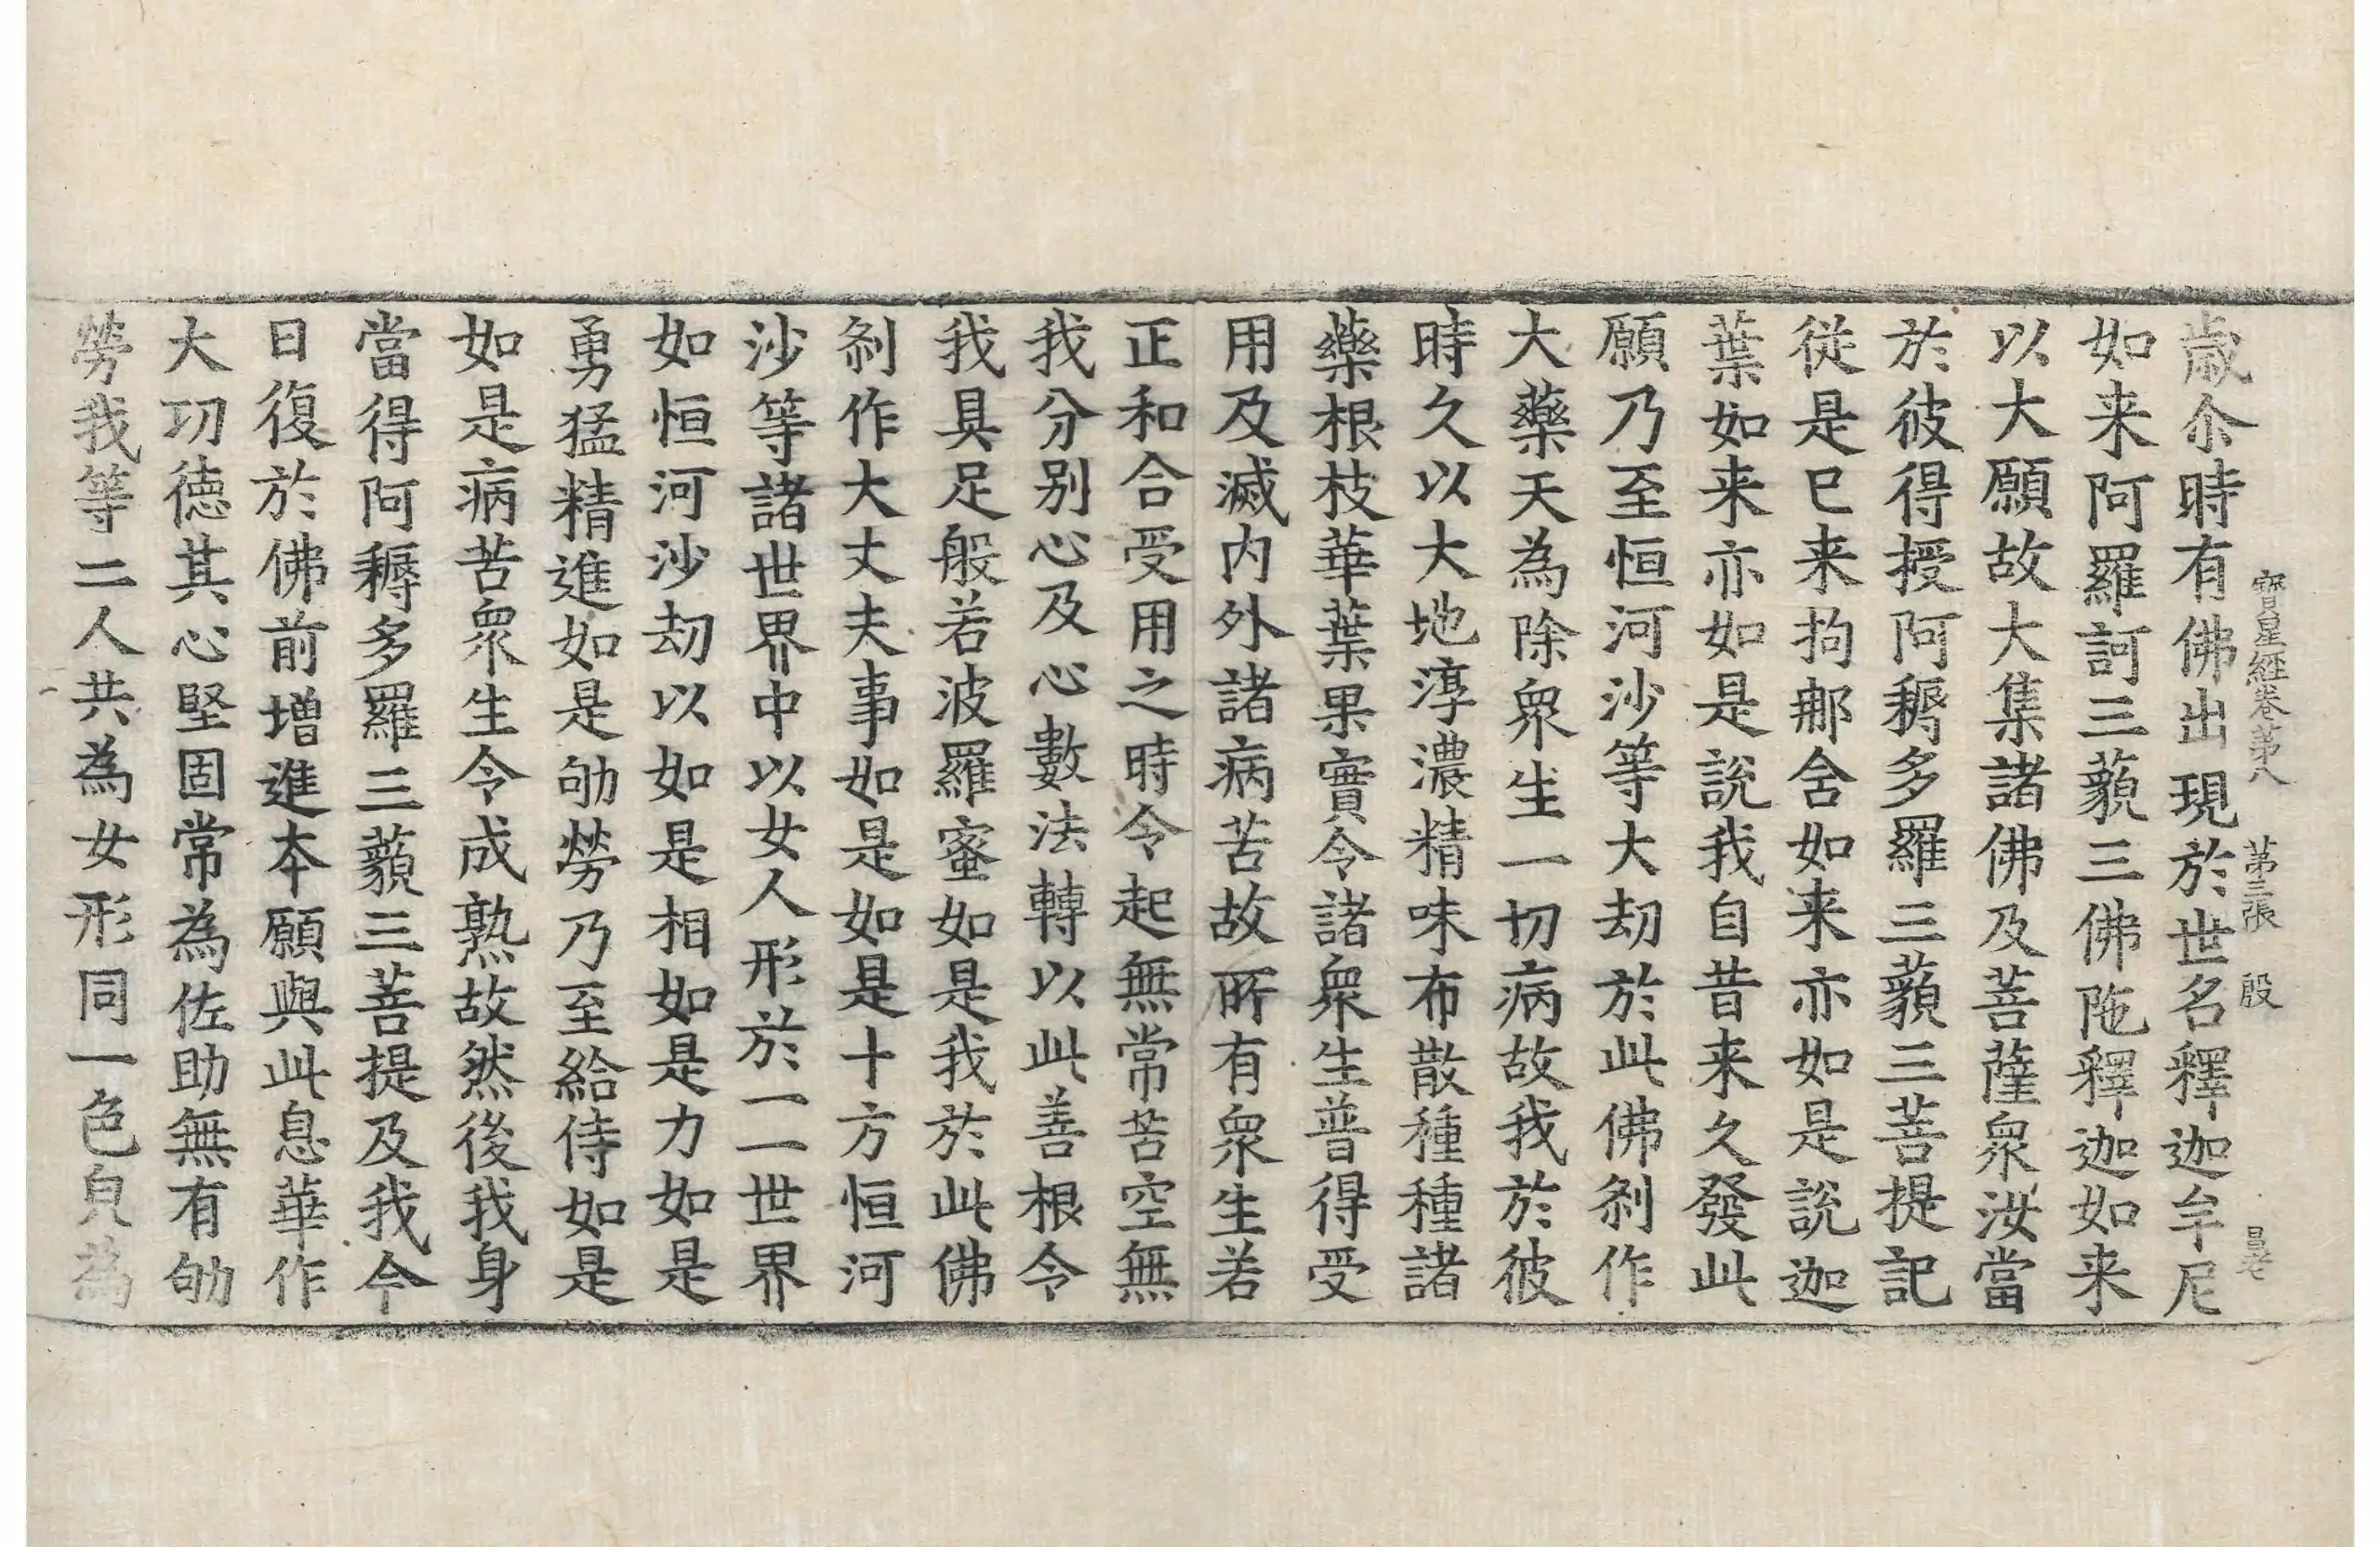 寳星經卷第八 第三張 殷
歳尒時有佛出現於世名釋迦牟尼
如来阿羅訶三藐三佛陁釋迦如来
以大願故大集諸佛及菩薩衆汝當
於彼得授阿耨多羅三藐三菩提記
従是巳来拘那舍如来亦如是說迦
葉如来亦如是說我自昔来久發此
願乃至恒河沙等大劫於此佛刹作
大藥天為除衆生一切病故我於彼
時久以大地淳濃精味布散種種諸
藥根枝華葉果實令諸衆生普得受
用及滅内外諸病苦故所有衆生若
正和合受用之時令起無常苦空無
我分别心及心數法轉以此善根令
我具足般若波羅蜜如是我於此佛
刹作大丈夫事如是如是十方恒河
沙等諸世界中以女人形於一一世界
如恒河沙劫以如是相如是力如是
勇猛精進如是劬勞乃至給侍如是
如是病苦衆生令成熟故然後我身
當得阿耨多羅三藐三菩提及我今
日復於佛前增進本願與此息華作
大㓛德其心堅固常為佐助無有劬
勞我等二人共為女形同一色皃為